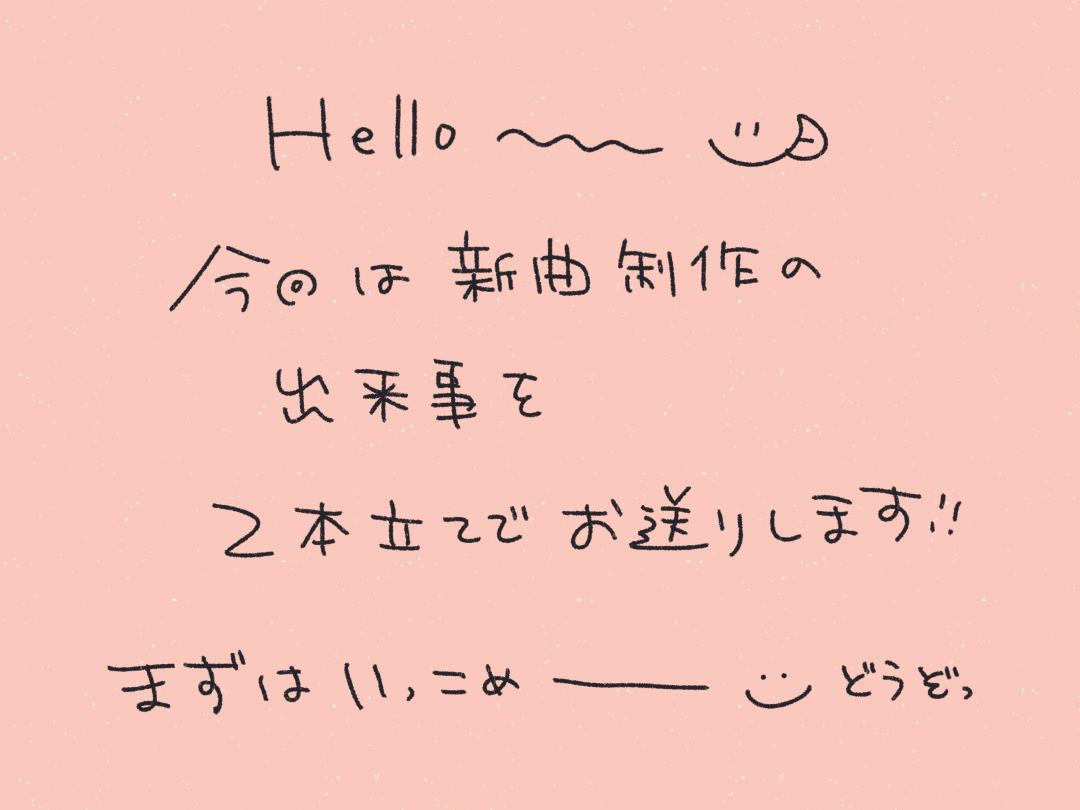 Hello 〜〜
今回は新曲制作の
出来事を
2本立てでお送りします!!
まずはいっこめー どうぞっ